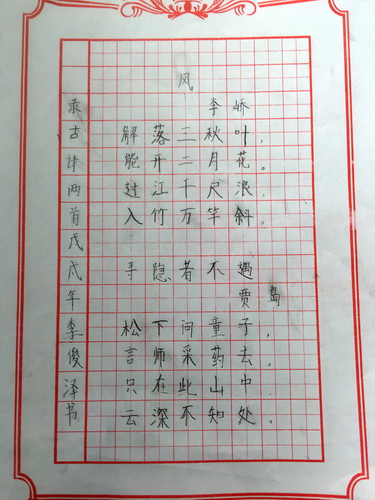 风
李峤
解落三秋叶，
能开二月花。
过江千尺浪，
入竹万竿斜。
寻隐者不遇
贾岛
松下问童子，
言师采药去。
只在此山中
云深不知处。
录古律两首戊戌年李俊泽书